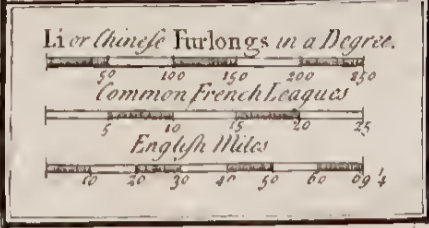 Li or Chinese Furlongs in a Degree.
50 100 150 200 250
Common French Leagues
5 10 15 20 25
English Miles
10 20 30 40 50 60 69 1/4